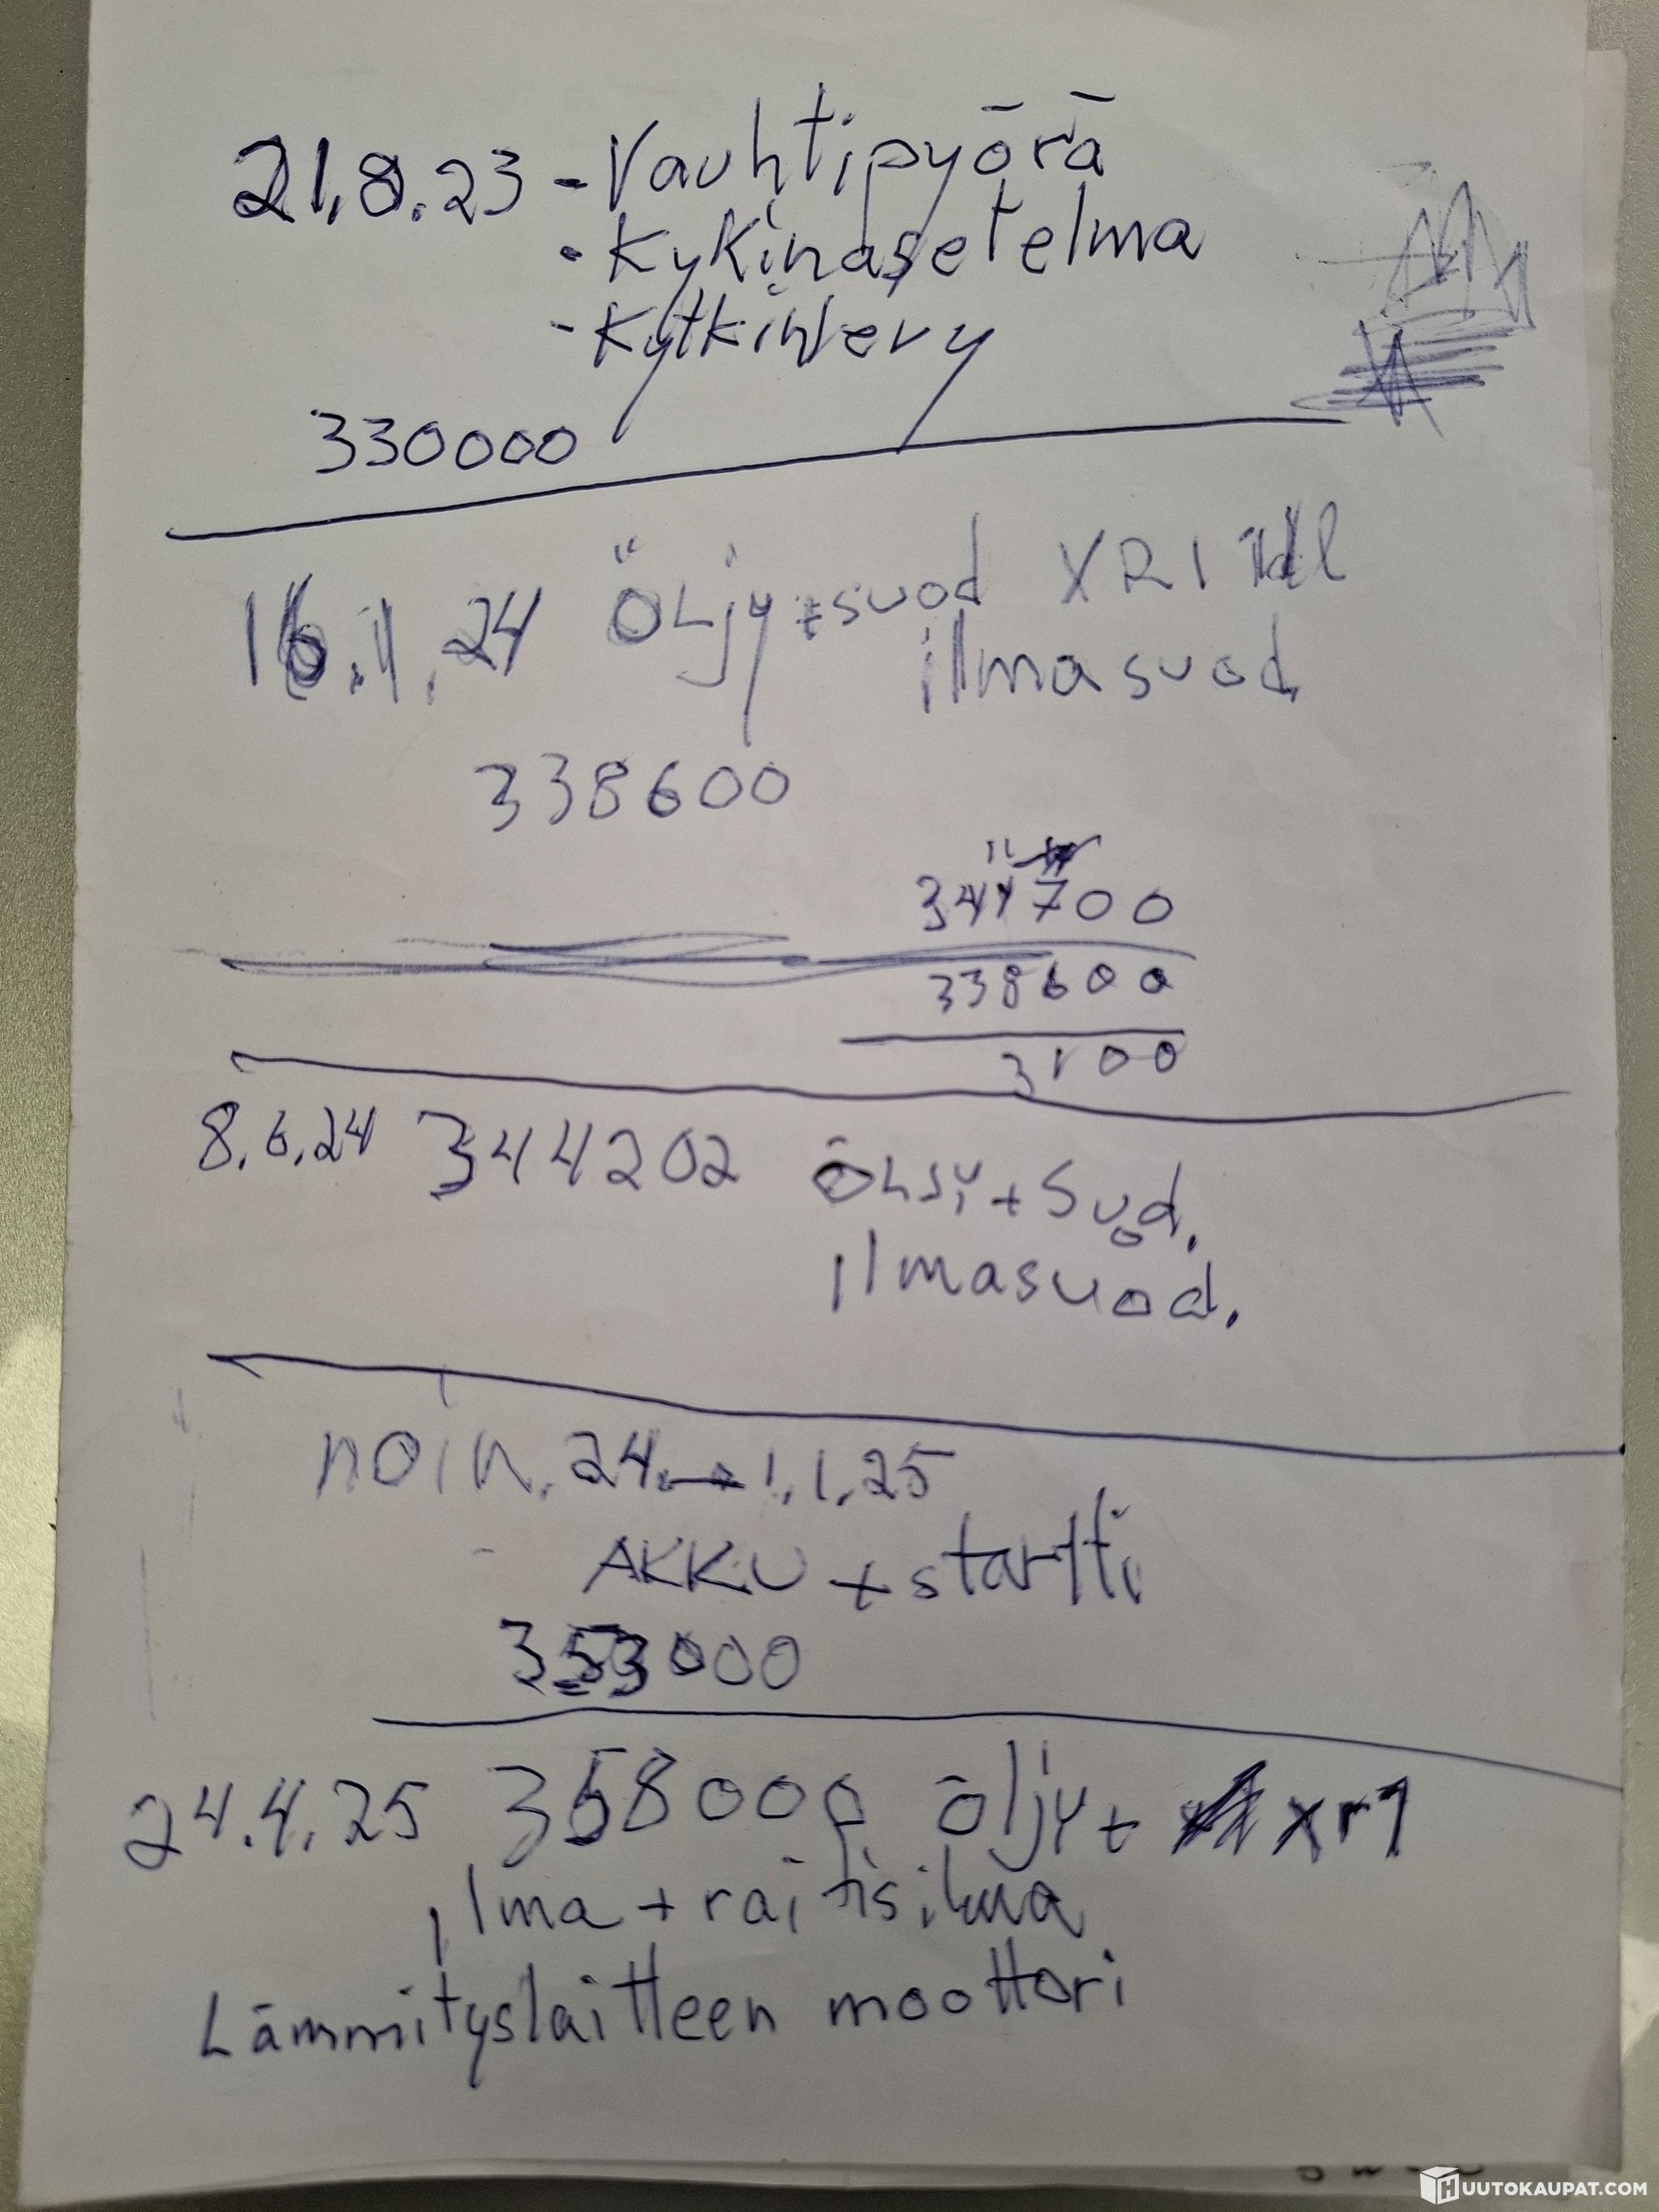 21.8.23 - Vauhtipyörä
- Kykinasetelma
- Kytkinlevy
330000
16.1.24 Öljy + suod XR1
ilmasuod
338600
11
341700
338600
3100
8.6.24 344202 Öljy + Suod.
ilmasuod.
noin. 24. - 1.1.25
AKKU + startti
353000
24.4.25 358000 öljy + xr1
ilma + raitisilma
Lämmityslaitteen moottori
HUUTOKAUPAT.COM